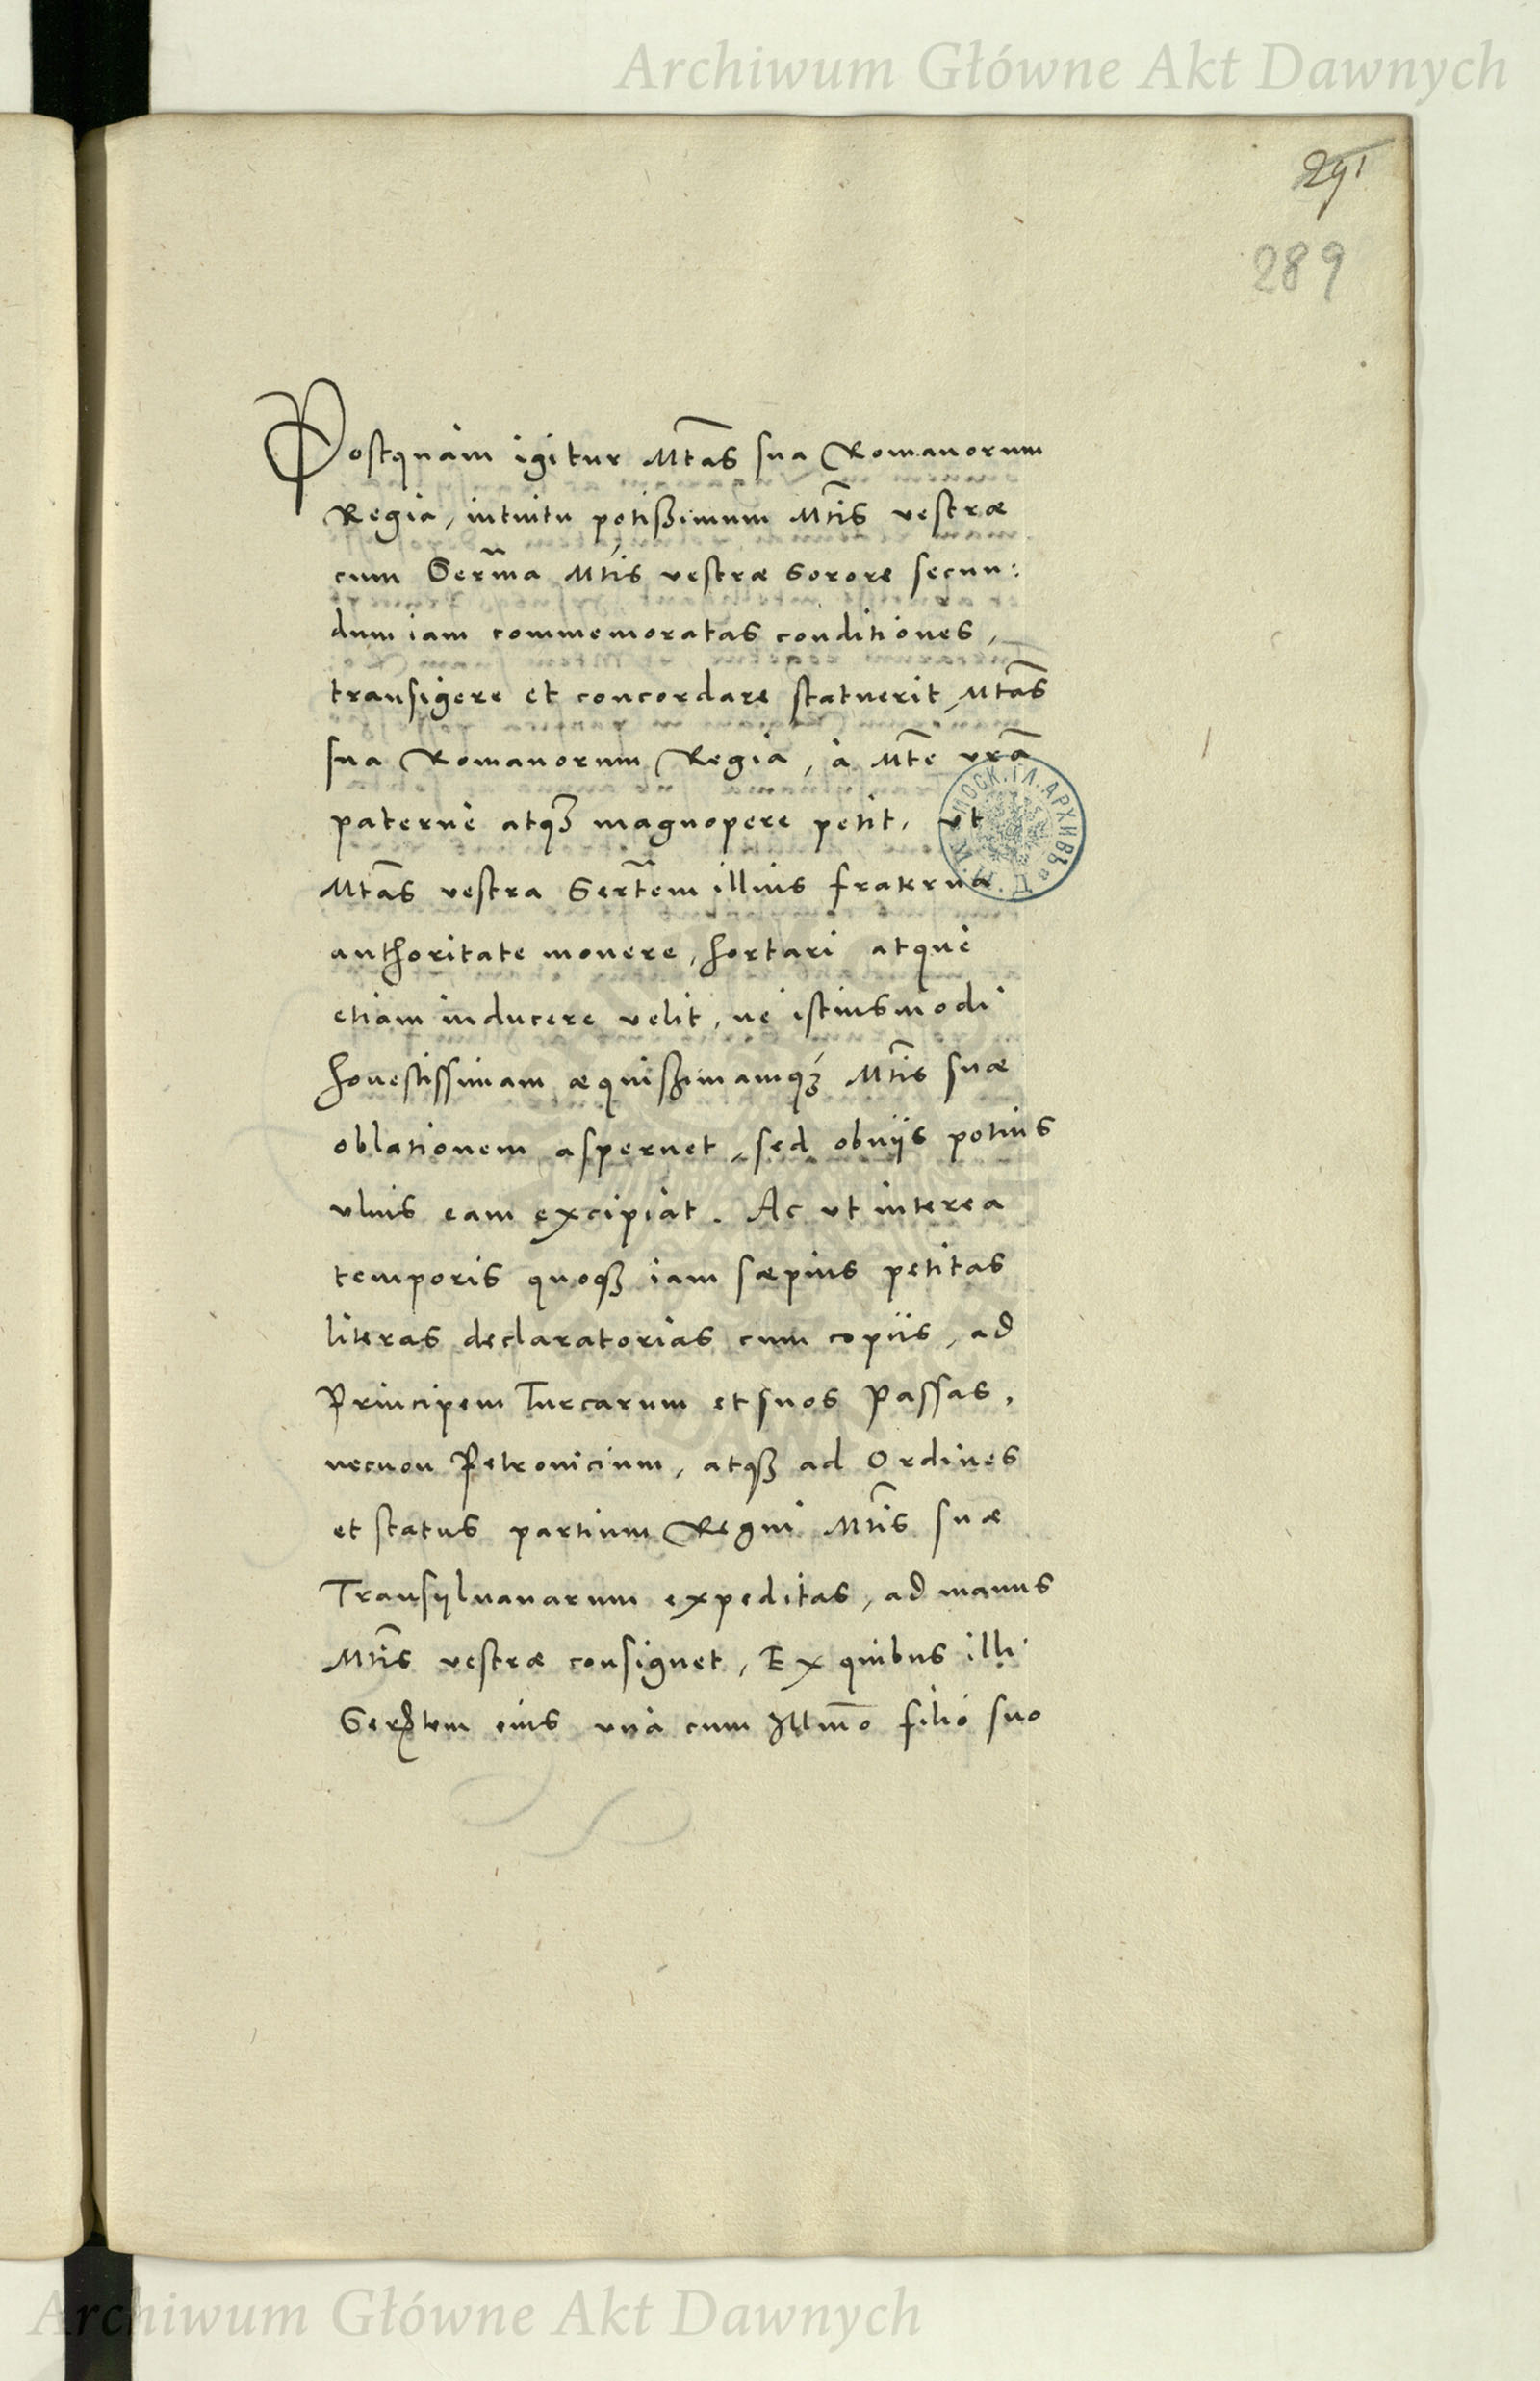 Archiwum Główne Akt Dawnych
291
289
Postquam igitur Mtas sua Romanorum
Regia, intuitu potißimum Mtis vestræ
cum Serma Mtis vestræ Sorore secun:
dum iam commemoratas conditiones,
transigere et concordare statuerit, Mtas
sua Romanorum Regia, à Mte vrã
paternè atq3 magnopere petit, ut
Mtas vestra Sertem illius fraterna
authoritate monere, hortari atque
etiam inducere velit, ne istiusmodi
honestissimam æquißimamq3 Mtis suæ
oblationem aspernet, sed obuijs potius
vlnis eam excipiat. Ac ut interea
temporis quoq3 iam sæpius petitas
literas declaratorias cum copijs, ad
Principem Turcarum et suos Passas,
necnon Petrouicium, atq3 ad Ordines
et status partium Regni Mtis suæ
Transyluanarum expeditas, ad manus
Mtis vestræ consignet, Ex quibus illi
Sertem eius unà cum Illmo filio suo
Archiwum Główne Akt Dawnych